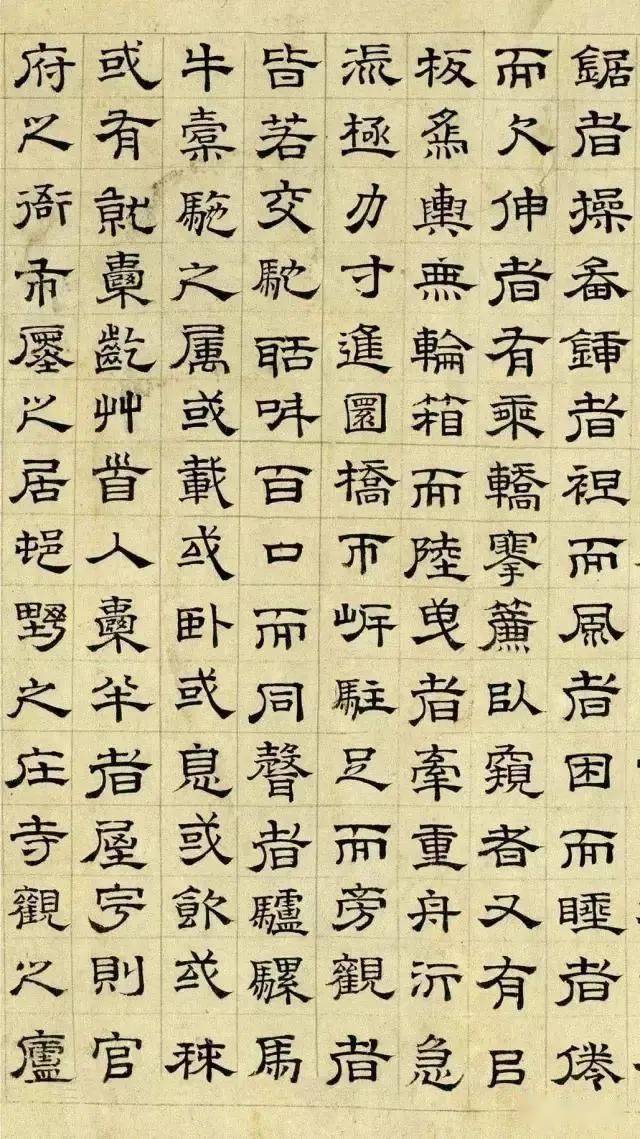 鋸者操畚鍤者袒而風者困而睡者倦
而欠伸者有乘轎搴簾㠯窺者又有㠯
板為輿無輪箱而陸曳者牽重舟泝急
流極力寸進圜橋帀岸駐足而旁觀者
皆若交馳聒呌百口而同聲者驢騾馬
牛橐駞之属或載或卧或息或飲或秣
或有就囊齕艸首入囊半者屋宇則官
府之衙市廛之居邨野之庄寺觀之廬